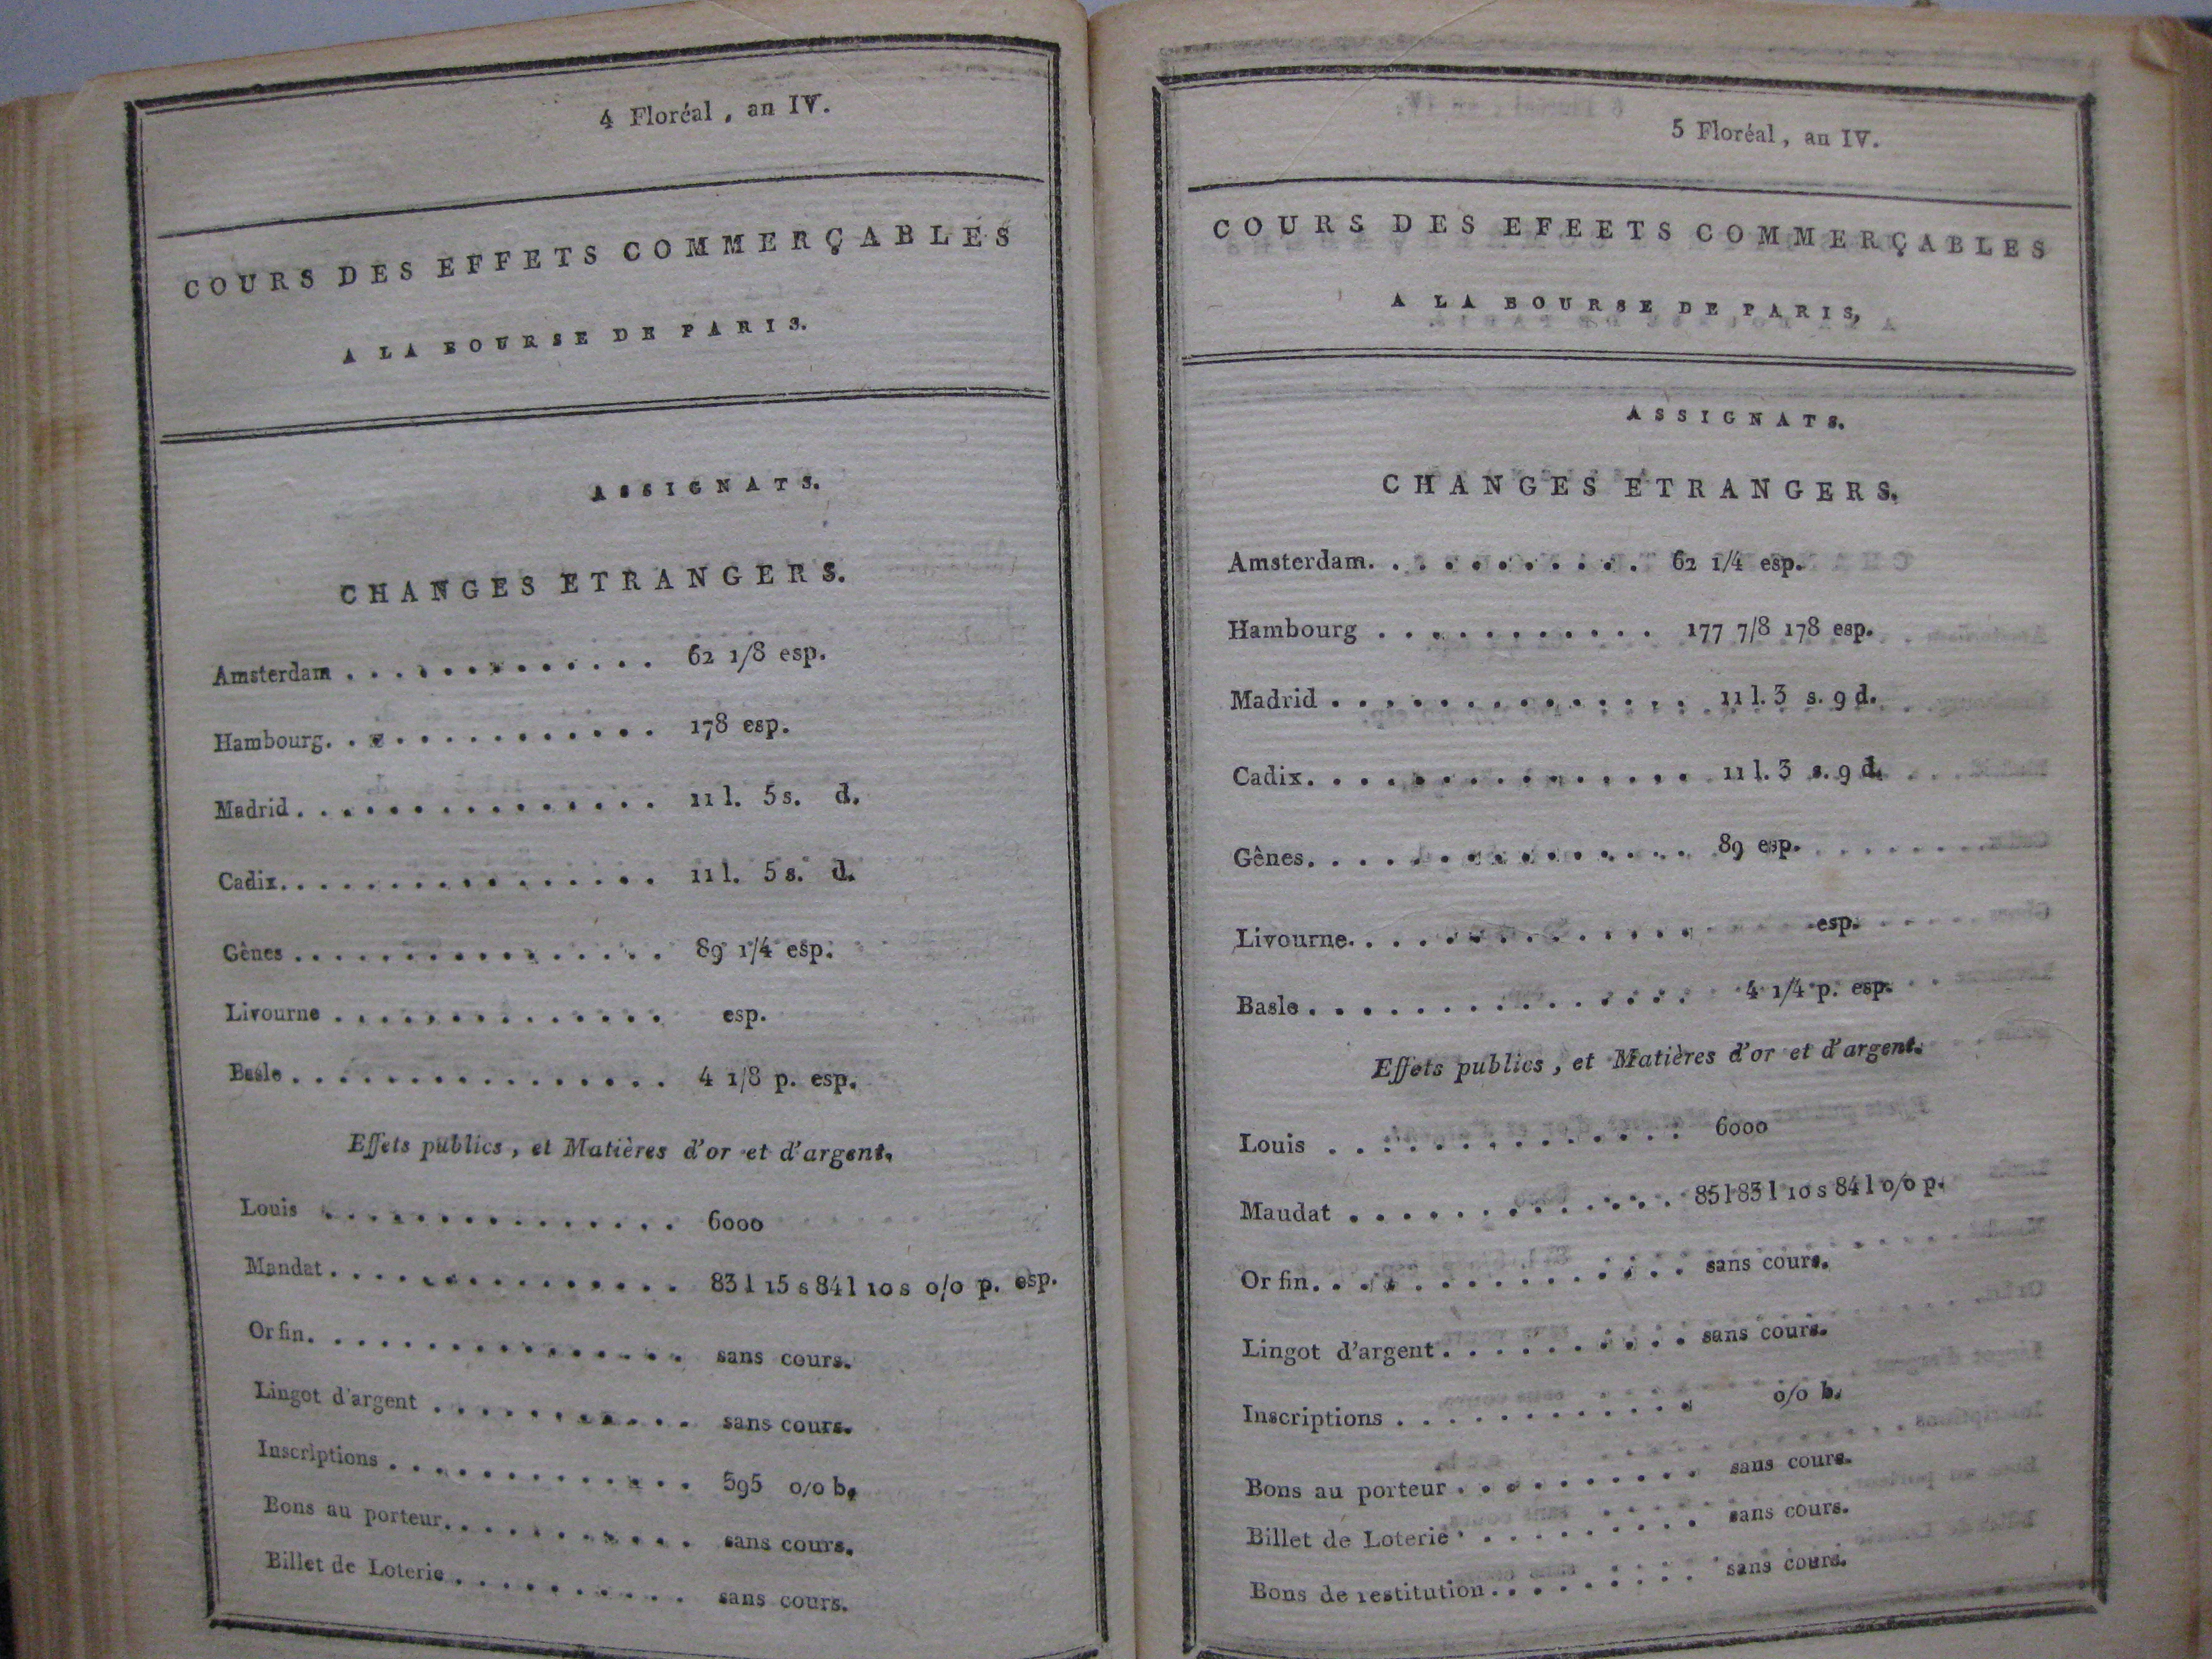 4 Floréal, an IV.
COURS DES EFFETS COMMERÇABLES
A LA BOURSE DE PARIS.
ASSIGNATS.
CHANGES ETRANGERS.
Amsterdam . . . . . . . . . . . . . 62 1/8 esp.
Hambourg. . . . . . . . . . . . . . 178 esp.
Madrid. . . . . . . . . . . . . . . 11 l. 5 s. d.
Cadix. . . . . . . . . . . . . . . . 11 l. 5 s. d.
Gênes . . . . . . . . . . . . . . . 89 1/4 esp.
Livourne . . . . . . . . . . . . . . esp.
Basle . . . . . . . . . . . . . . . . 4 1/8 p. esp.
Effets publics, et Matières d'or et d'argent.
Louis . . . . . . . . . . . . . . . 6000
Mandat . . . . . . . . . . . . . . . 83 l 15 s 84 l 10 s o/o p. esp.
Or fin. . . . . . . . . . . . . . . . sans cours.
Lingot d'argent . . . . . . . . . . . sans cours.
Inscriptions . . . . . . . . . . . . . 595 o/o b.
Bons au porteur. . . . . . . . . . . sans cours.
Billet de Loterie . . . . . . . . . . sans cours.
5 Floréal, an IV.
COURS DES EFEETS COMMERÇABLES
A LA BOURSE DE PARIS,
ASSIGNATS.
CHANGES ETRANGERS.
Amsterdam. . . . . . . . . . . 62 1/4 esp.
Hambourg . . . . . . . . . . . 177 7/8 178 esp.
Madrid . . . . . . . . . . . . . . 11 l. 3 s. 9 d.
Cadix. . . . . . . . . . . . . . . 11 l. 3 s. 9 d.
Gênes. . . . . . . . . . . . . . . 89 esp.
Livourne. . . . . . . . . . . . . . esp.
Basle . . . . . . . . . . . . . . . 4 1/4 p. esp.
Effets publics, et Matières d'or et d'argent.
Louis . . . . . . . . . . . . . . 6000
Maudat . . . . . . . . . . . . . 85 l 83 l 10 s 84 l o/o p.
Or fin. . . . . . . . . . . . . . . sans cours.
Lingot d'argent . . . . . . . . . . sans cours.
Inscriptions . . . . . . . . . . . . o/o b.
Bons au porteur . . . . . . . . . . sans cours.
Billet de Loterie . . . . . . . . . . sans cours.
Bons de restitution . . . . . . . . . sans cours.